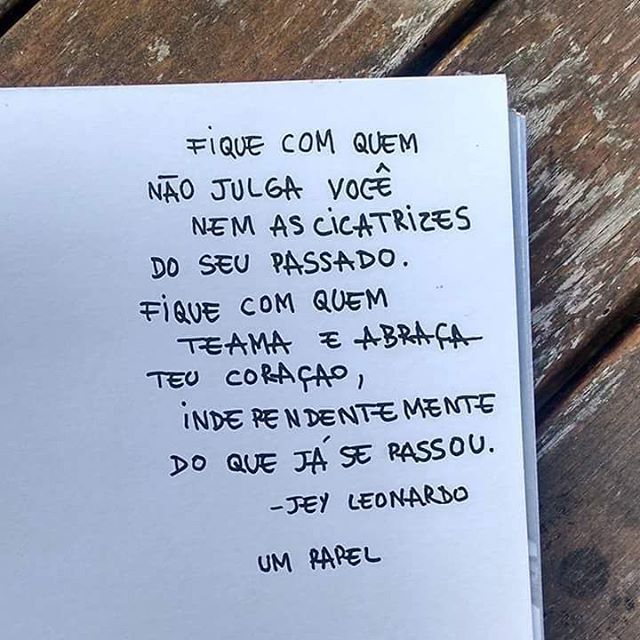 FIQUE COM QUEM
NÃO JULGA VOCÊ
NEM AS CICATRIZES
DO SEU PASSADO.
FIQUE COM QUEM
TE AMA E ABRAÇA
TEU CORAÇÃO,
INDEPENDENTEMENTE
DO QUE JÁ SE PASSOU.
-JEY LEONARDO
UM PAPEL